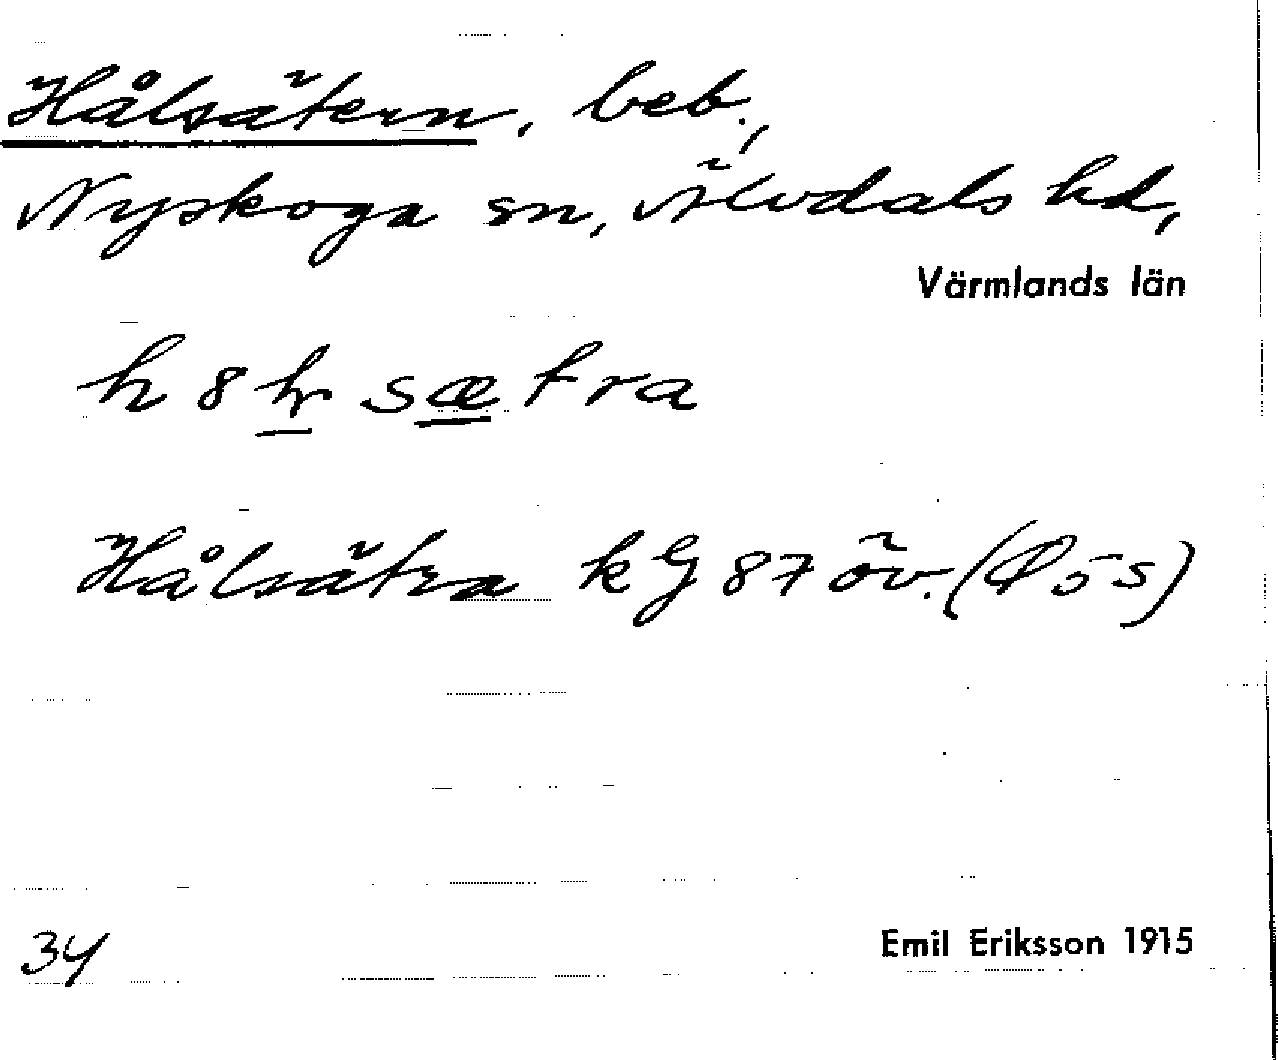 Hålsätern, beb.,
Nyskoga sn, Älvdals hd,
Värmlands län
h 8 hr sætra
Hålsätra kG 87 öv.
34
Emil Eriksson 1915